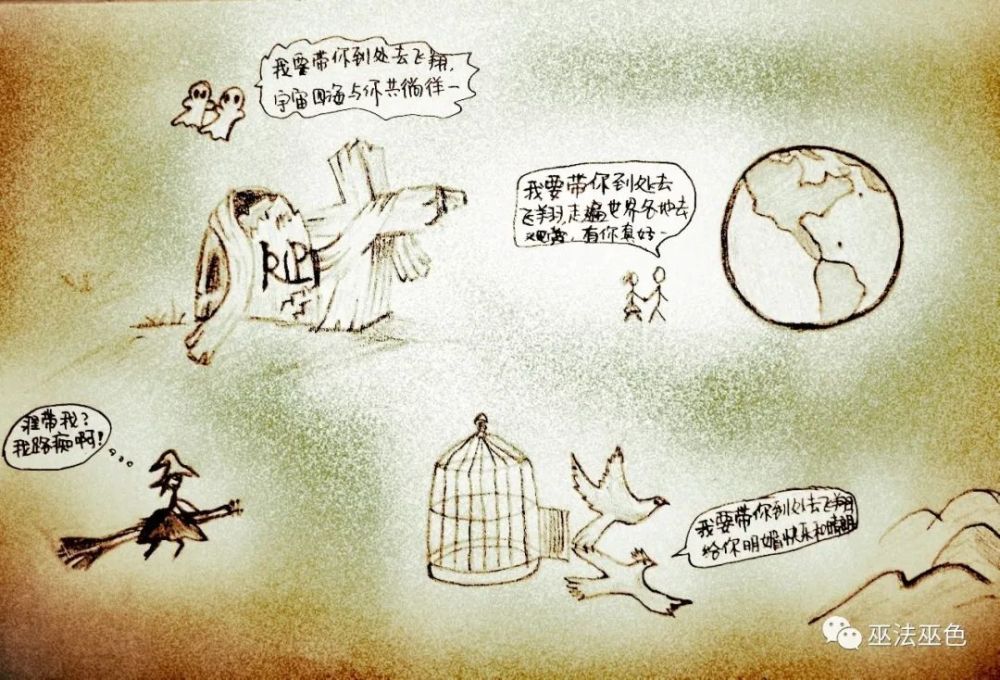 我要带你到处去飞翔，
宇宙四海与你共徜徉一
RIP
我要带你到处去
飞翔，走遍世界各地去
观赏，有你真好一
谁带我？
我路痴啊！
我要带你到处去飞翔
给你明媚快乐和晴朗
巫法巫色